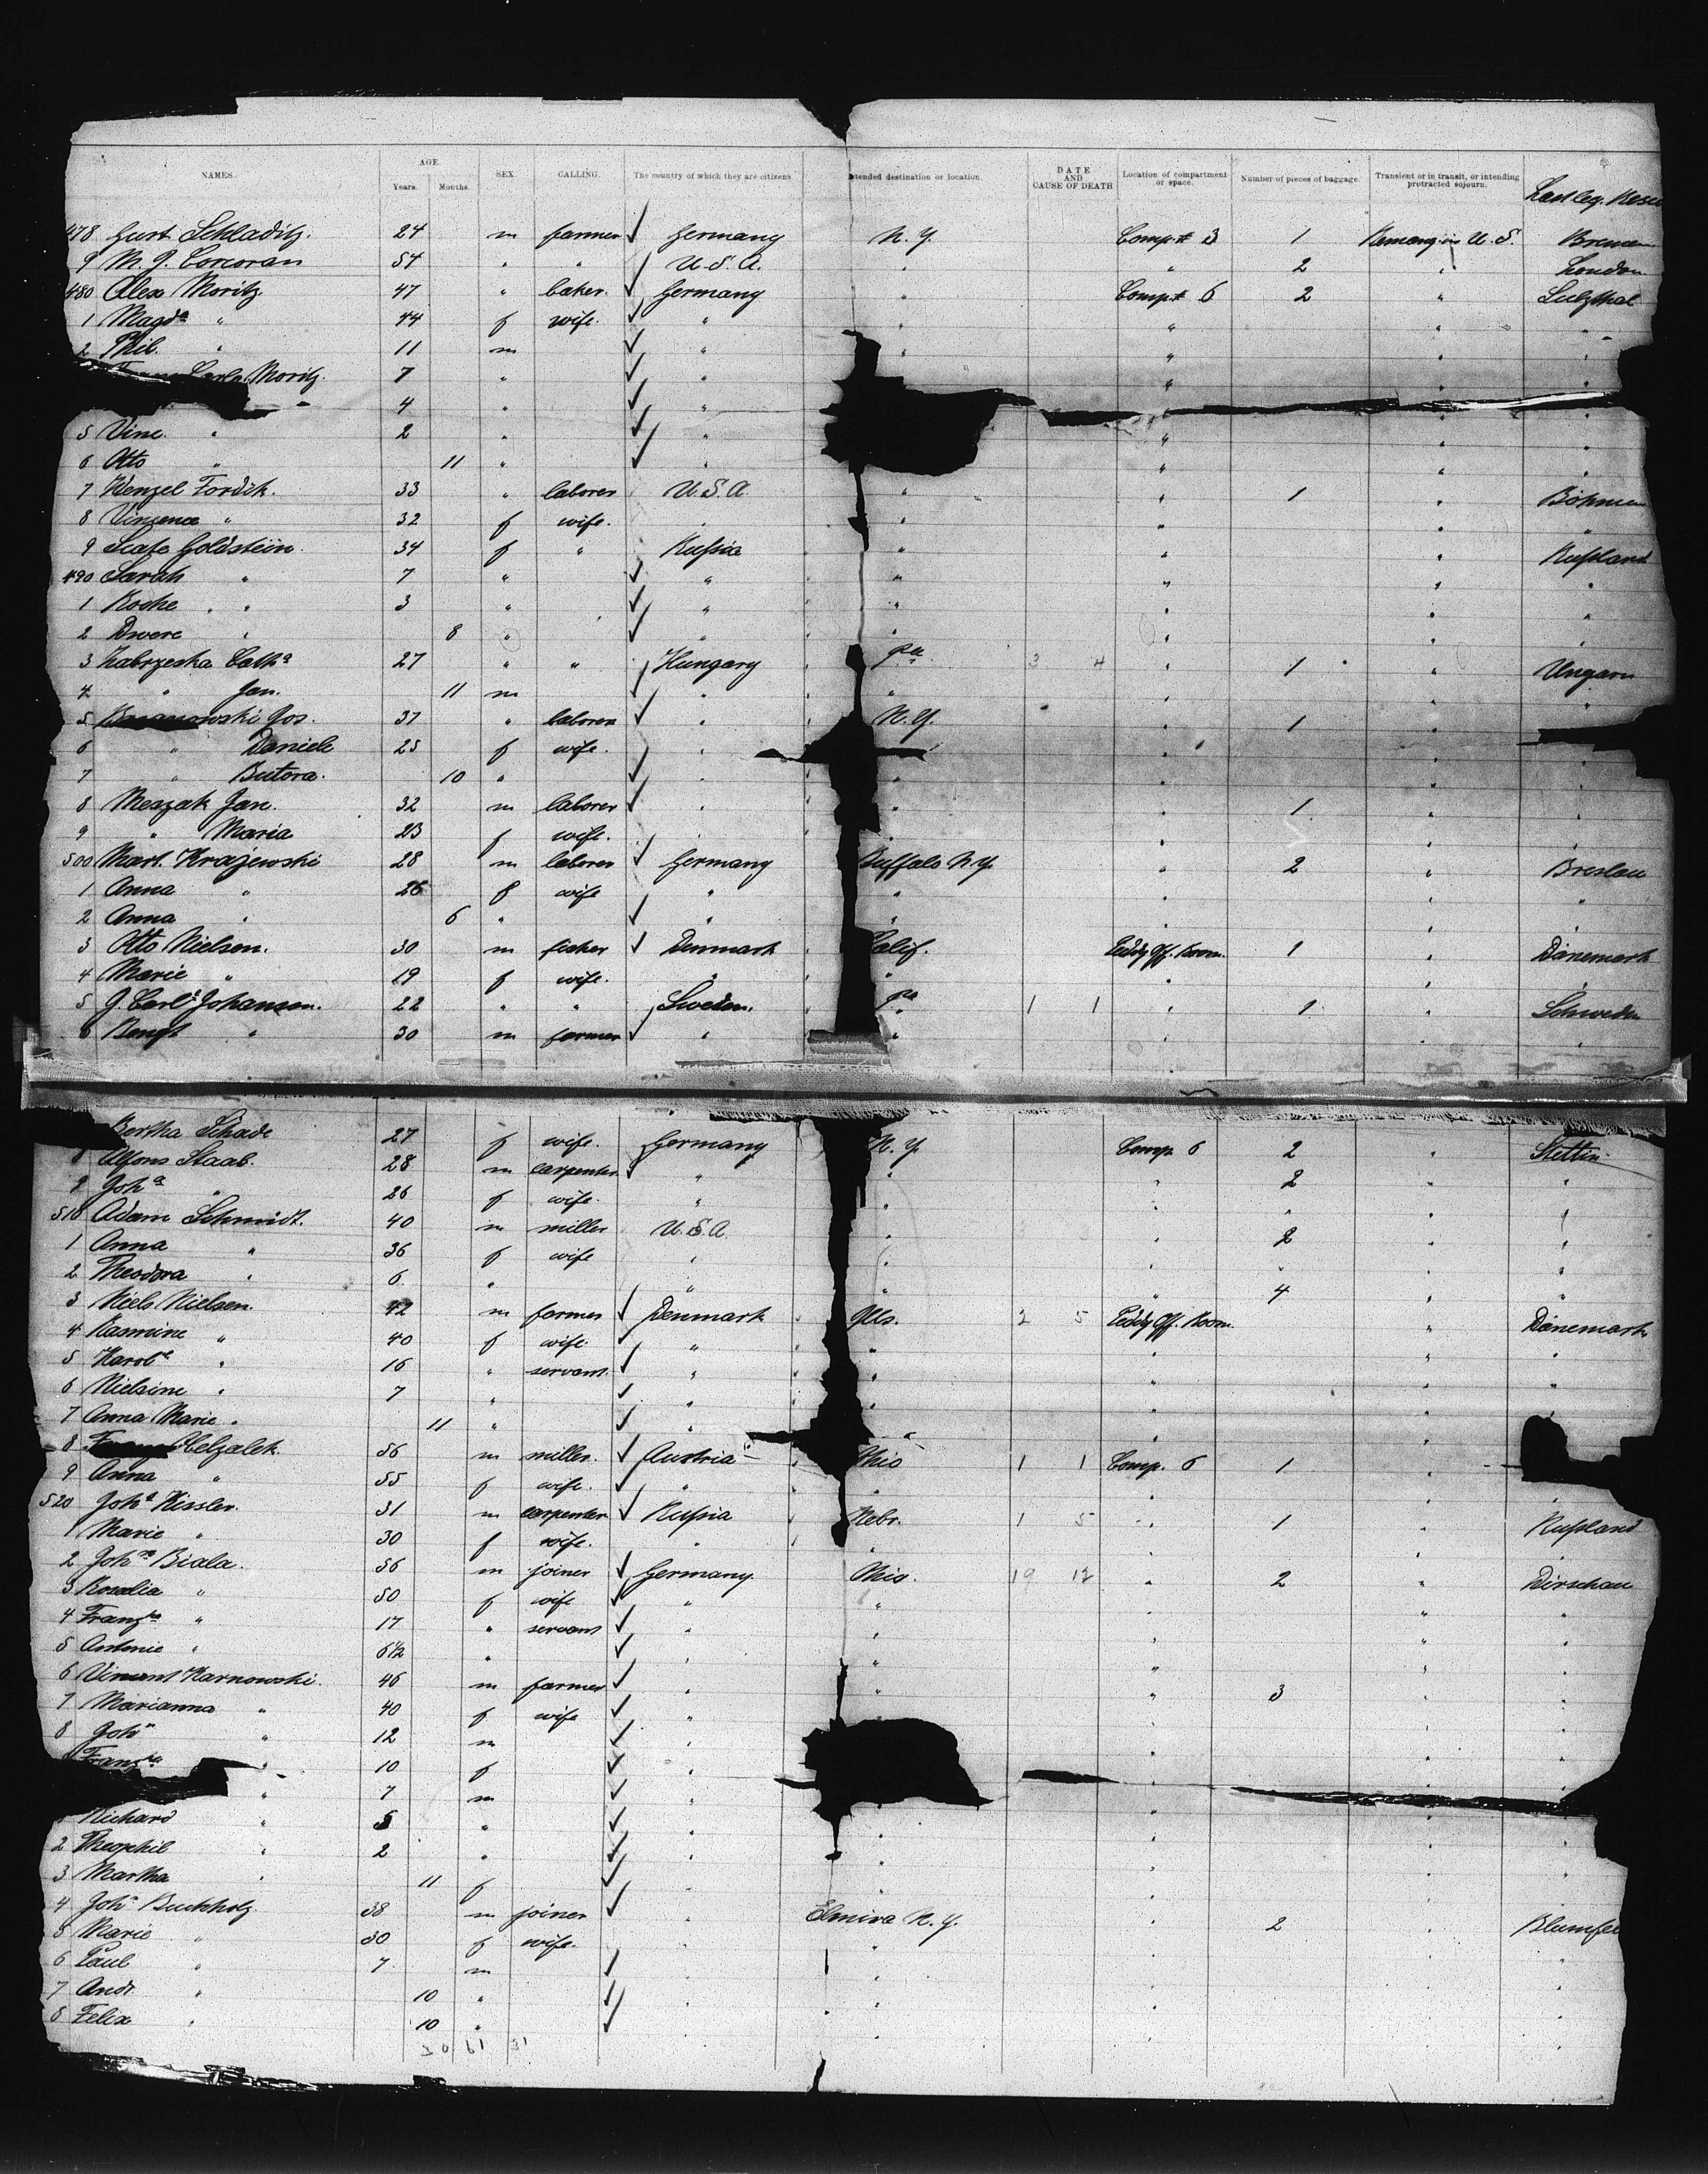 NAMES. AGE. Years. Months. SEX. CALLING. The country of which they are citizens. Intended destination or location. DATE AND CAUSE OF DEATH Location of compartment or space. Number of pieces of baggage. Transient or in transit, or intending protracted sojourn. Last leg.
478 Gust. Schladitz. 24 m farmer ✓ Germany N. Y. Compt 3 1 U. S. Bremen
9 M. J. Corcoran 54 " " ✓ U. S. A. " " 2 " London
480 Alex Moritz 47 " baker. ✓ Germany " Compt 6 2 " Sulzthal
1 Magda " 44 f wife. ✓ " " " " "
2 Phil. " 11 m ✓ " " " " "
Carla Moritz. 7 " ✓ " " " "
4 " ✓ " " " "
5 Vinc. " 2 " ✓ " " " "
6 Otto " 11 " ✓ " " " "
7 Wenzel Fordik. 33 " laborer U. S. A " " 1 " Böhmen
8 Vinzena " 32 f wife. " " " " "
9 Goldstein 34 f " Russia " " " Russland
490 Sarah " 7 " ✓ " " " " "
1 Roche " 3 " ✓ " " " " "
2 Dwere " 8 " ✓ " " " " "
3 Zabrzeska Catha 27 " " ✓ Hungary Pa 3 4 " 1 " Ungarn
4 " Jan. 11 m ✓ " " " " "
5 Jos. 37 " laborer ✓ " N. Y. " 1 "
6 " Daniele 25 f wife. ✓ " " "
7 " Butora. 10 " ✓ " " " " "
8 Meszak Jan. 32 m laborer ✓ " " " 1 " "
9 " Maria 23 f wife. " " " " "
500 Mart. Krajewski 28 m laborer ✓ Germany Buffalo N.Y. " 2 " Breslau
1 Anna " 26 f wife " " " " "
2 Anna " 6 " ✓ " " " " "
3 Otto Nielsen. 30 m fisher ✓ Denmark Calif. Off. Room. 1 " Dänemark
4 Marie " 19 f wife. " " " " "
5 J. Carl Johansen. 22 " " ✓ Sweden. Pa 1 1 " 1 " Schweden
6 Bengt " 30 m farmer ✓ " " " " "
Bertha Schade 27 f wife. ✓ Germany N. Y. Comp. 6 2 " Stettin
8 Alfons Staab. 28 m carpenter ✓ " " " 2 " "
9 Joha " 26 f wife. " " " " "
510 Adam Schmidt. 40 m miller U. S. A. " " 2 " "
1 Anna " 36 f wife " " " " "
2 Theodora " 6 " " " " 4 " "
3 Niels Nielsen. 42 m farmer ✓ Denmark Ills. 2 5 Off. Room. " Dänemark
4 Rasmine " 40 f wife ✓ " " " " "
5 Karole " 16 " servant. ✓ " " " " "
6 Nielsine " 7 " ✓ " " " " "
7 Anna Marie " 11 " ✓ " " "
8 56 m miller. ✓ Austria Ohio 1 1 Comp. 6 1 "
9 Anna " 55 f wife. ✓ " " " " "
520 Joha Kissler. 31 m carpenter ✓ Russia Nebr. 1 5 " 1 " Russland
1 Marie " 30 f wife. " " " " "
2 Johna Biala. 56 m joiner ✓ Germany Ohio. 19 12 " 2 " Dirschau
3 Rosalia " 50 f wife ✓ " " " " "
4 Franzka " 17 " servant ✓ " " " " "
5 Antonie " 6½ " ✓ " " " " "
6 Vincent Karnowski. 46 m farmer ✓ " " " 3 " "
7 Marianna " 40 f wife ✓ " " " " "
8 Johs " 12 m ✓ " " " "
Franzka " 10 f ✓ " " " "
" 7 m ✓ " " "
Richard " 5 " ✓ " " " " "
2 Theophil " 2 " ✓ " " " " "
3 Martha " 11 f ✓ " " " " "
4 Joha Buchholz 38 m joiner ✓ " Elmira N. Y. " 2 "
5 Marie " 30 f wife. " " " " "
6 Paul " 7 m ✓ " " " " "
7 Andr. " 10 " ✓ " " " " "
8 Felix " 10 " ✓ " " " " "